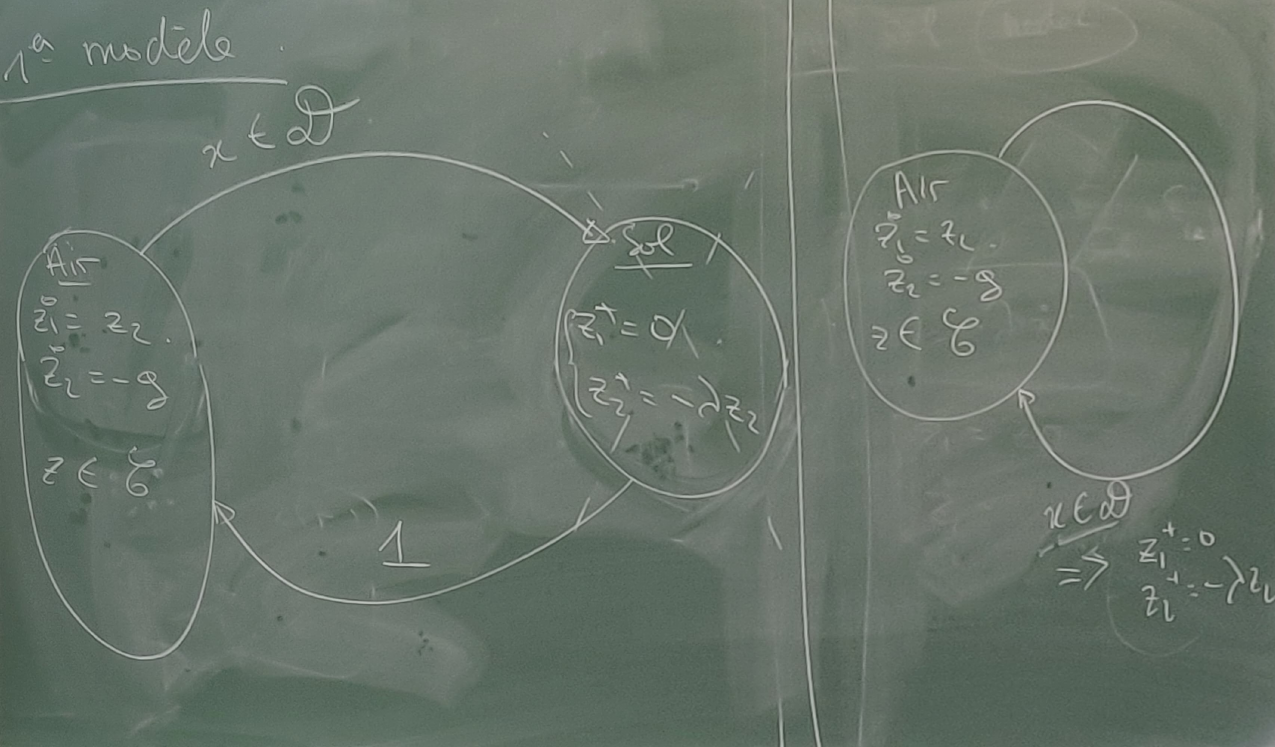 1er modèle
x ∈ 𝒟
Air
ż₁ = z₂
ż₂ = -g
z ∈ 𝒞
Sol
z₁⁺ = α
z₂⁺ = -λz₂
1
Air
ż₁ = z₂
ż₂ = -g
z ∈ 𝒞
x ∈ 𝒟
⇒ z₁⁺ = 0
z₂⁺ = -λz₂